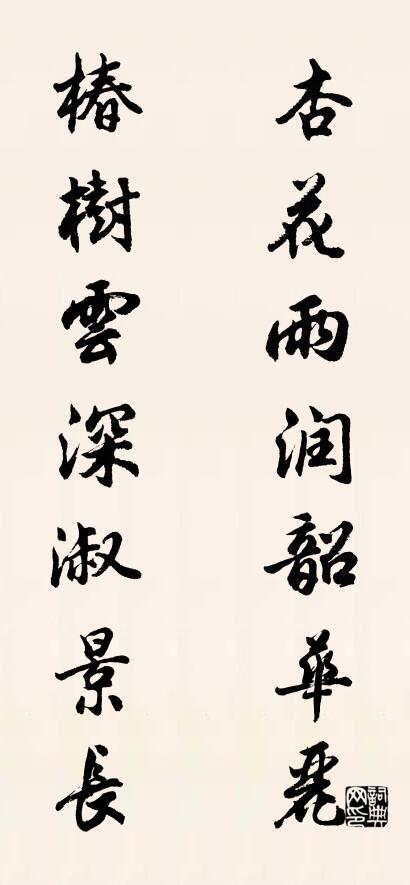 杏花雨润韶華麗
椿樹雲深淑景長
詞典网印